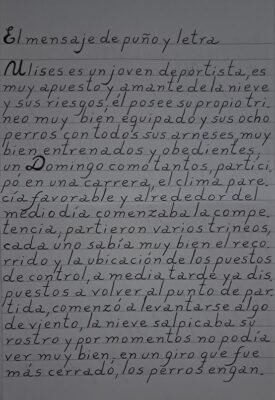 El mensaje de puño y letra
Ulises es un joven deportista, es
muy apuesto y amante de la nieve
y sus riesgos, él posee su propio tri.
neo muy bien equipado y sus ocho
perros con todos sus arneses, muy
bien entrenados y obedientes,
un Domingo como tantos, partici.
pó en una carrera, el clima pare.
cía favorable y alrededor del
mediodía comenzaba la compe.
tencia, partieron varios trineos,
cada uno sabía muy bien el reco.
rrido y la ubicación de los puestos
de control, a media tarde ya dis.
puestos a volver al punto de par.
tida, comenzó a levantarse algo
de viento, la nieve salpicaba su
rostro y por momentos no podía
ver muy bien, en un giro que fue
más cerrado, los perros engan.